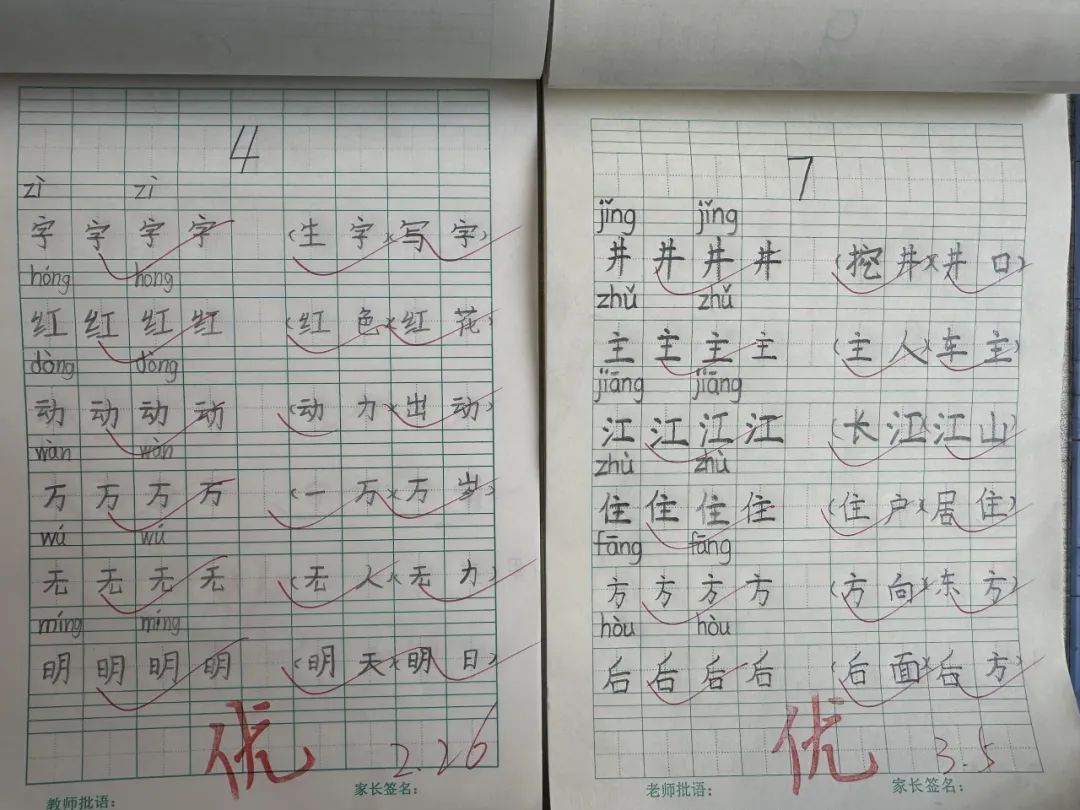 4
zì zì
字 字 字 字 (生字)(写字)
hóng hóng
红 红 红 红 (红色)(红花)
dòng dòng
动 动 动 动 (动力)(出动)
wàn wàn
万 万 万 万 (一万)(万岁)
wú wú
无 无 无 无 (无人)(无力)
míng míng
明 明 明 明 (明天)(明日)
优 2.26
教师批语： 家长签名：
7
jǐng jǐng
井 井 井 井 (挖井)(井口)
zhǔ zhǔ
主 主 主 主 (主人)(车主)
jiāng jiāng
江 江 江 江 (长江)(江山)
zhù zhù
住 住 住 住 (住户)(居住)
fāng fāng
方 方 方 方 (方向)(东方)
hòu hòu
后 后 后 后 (后面)(后方)
优 3.5
老师批语： 家长签名：